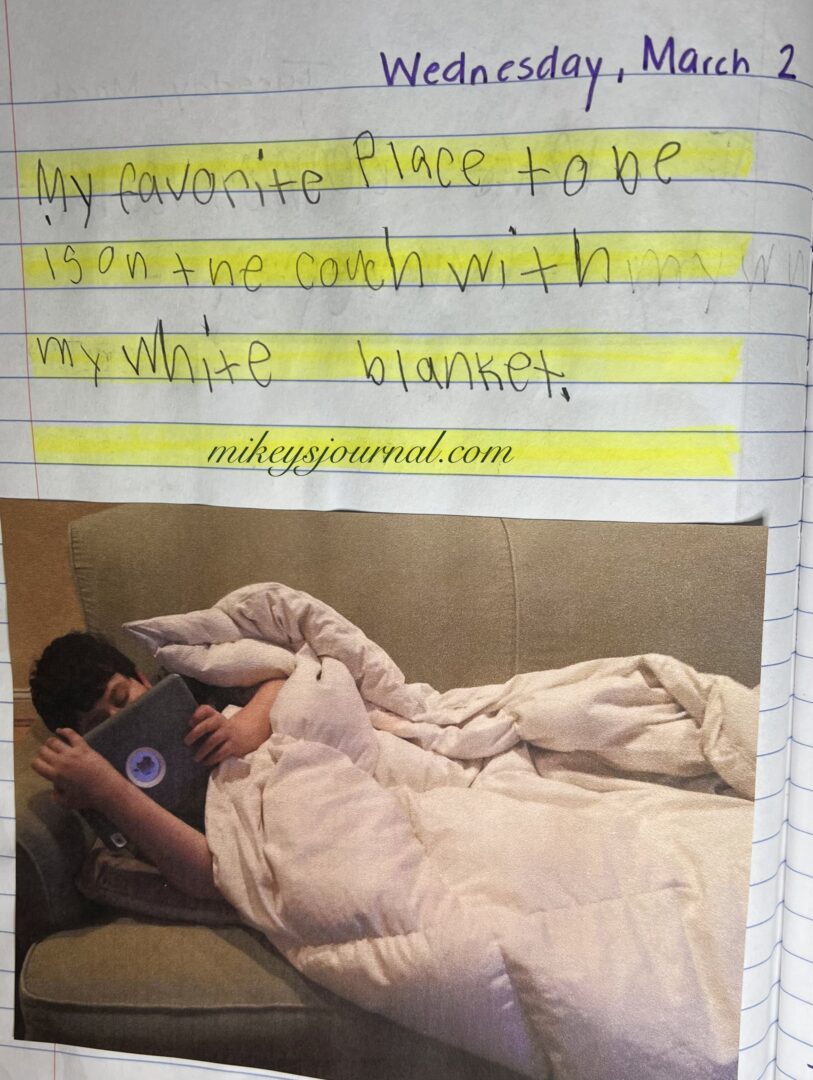 Wednesday, March 2
My favorite Place to be
is on the couch with my wh
my white blanket.
mikeysjournal.com